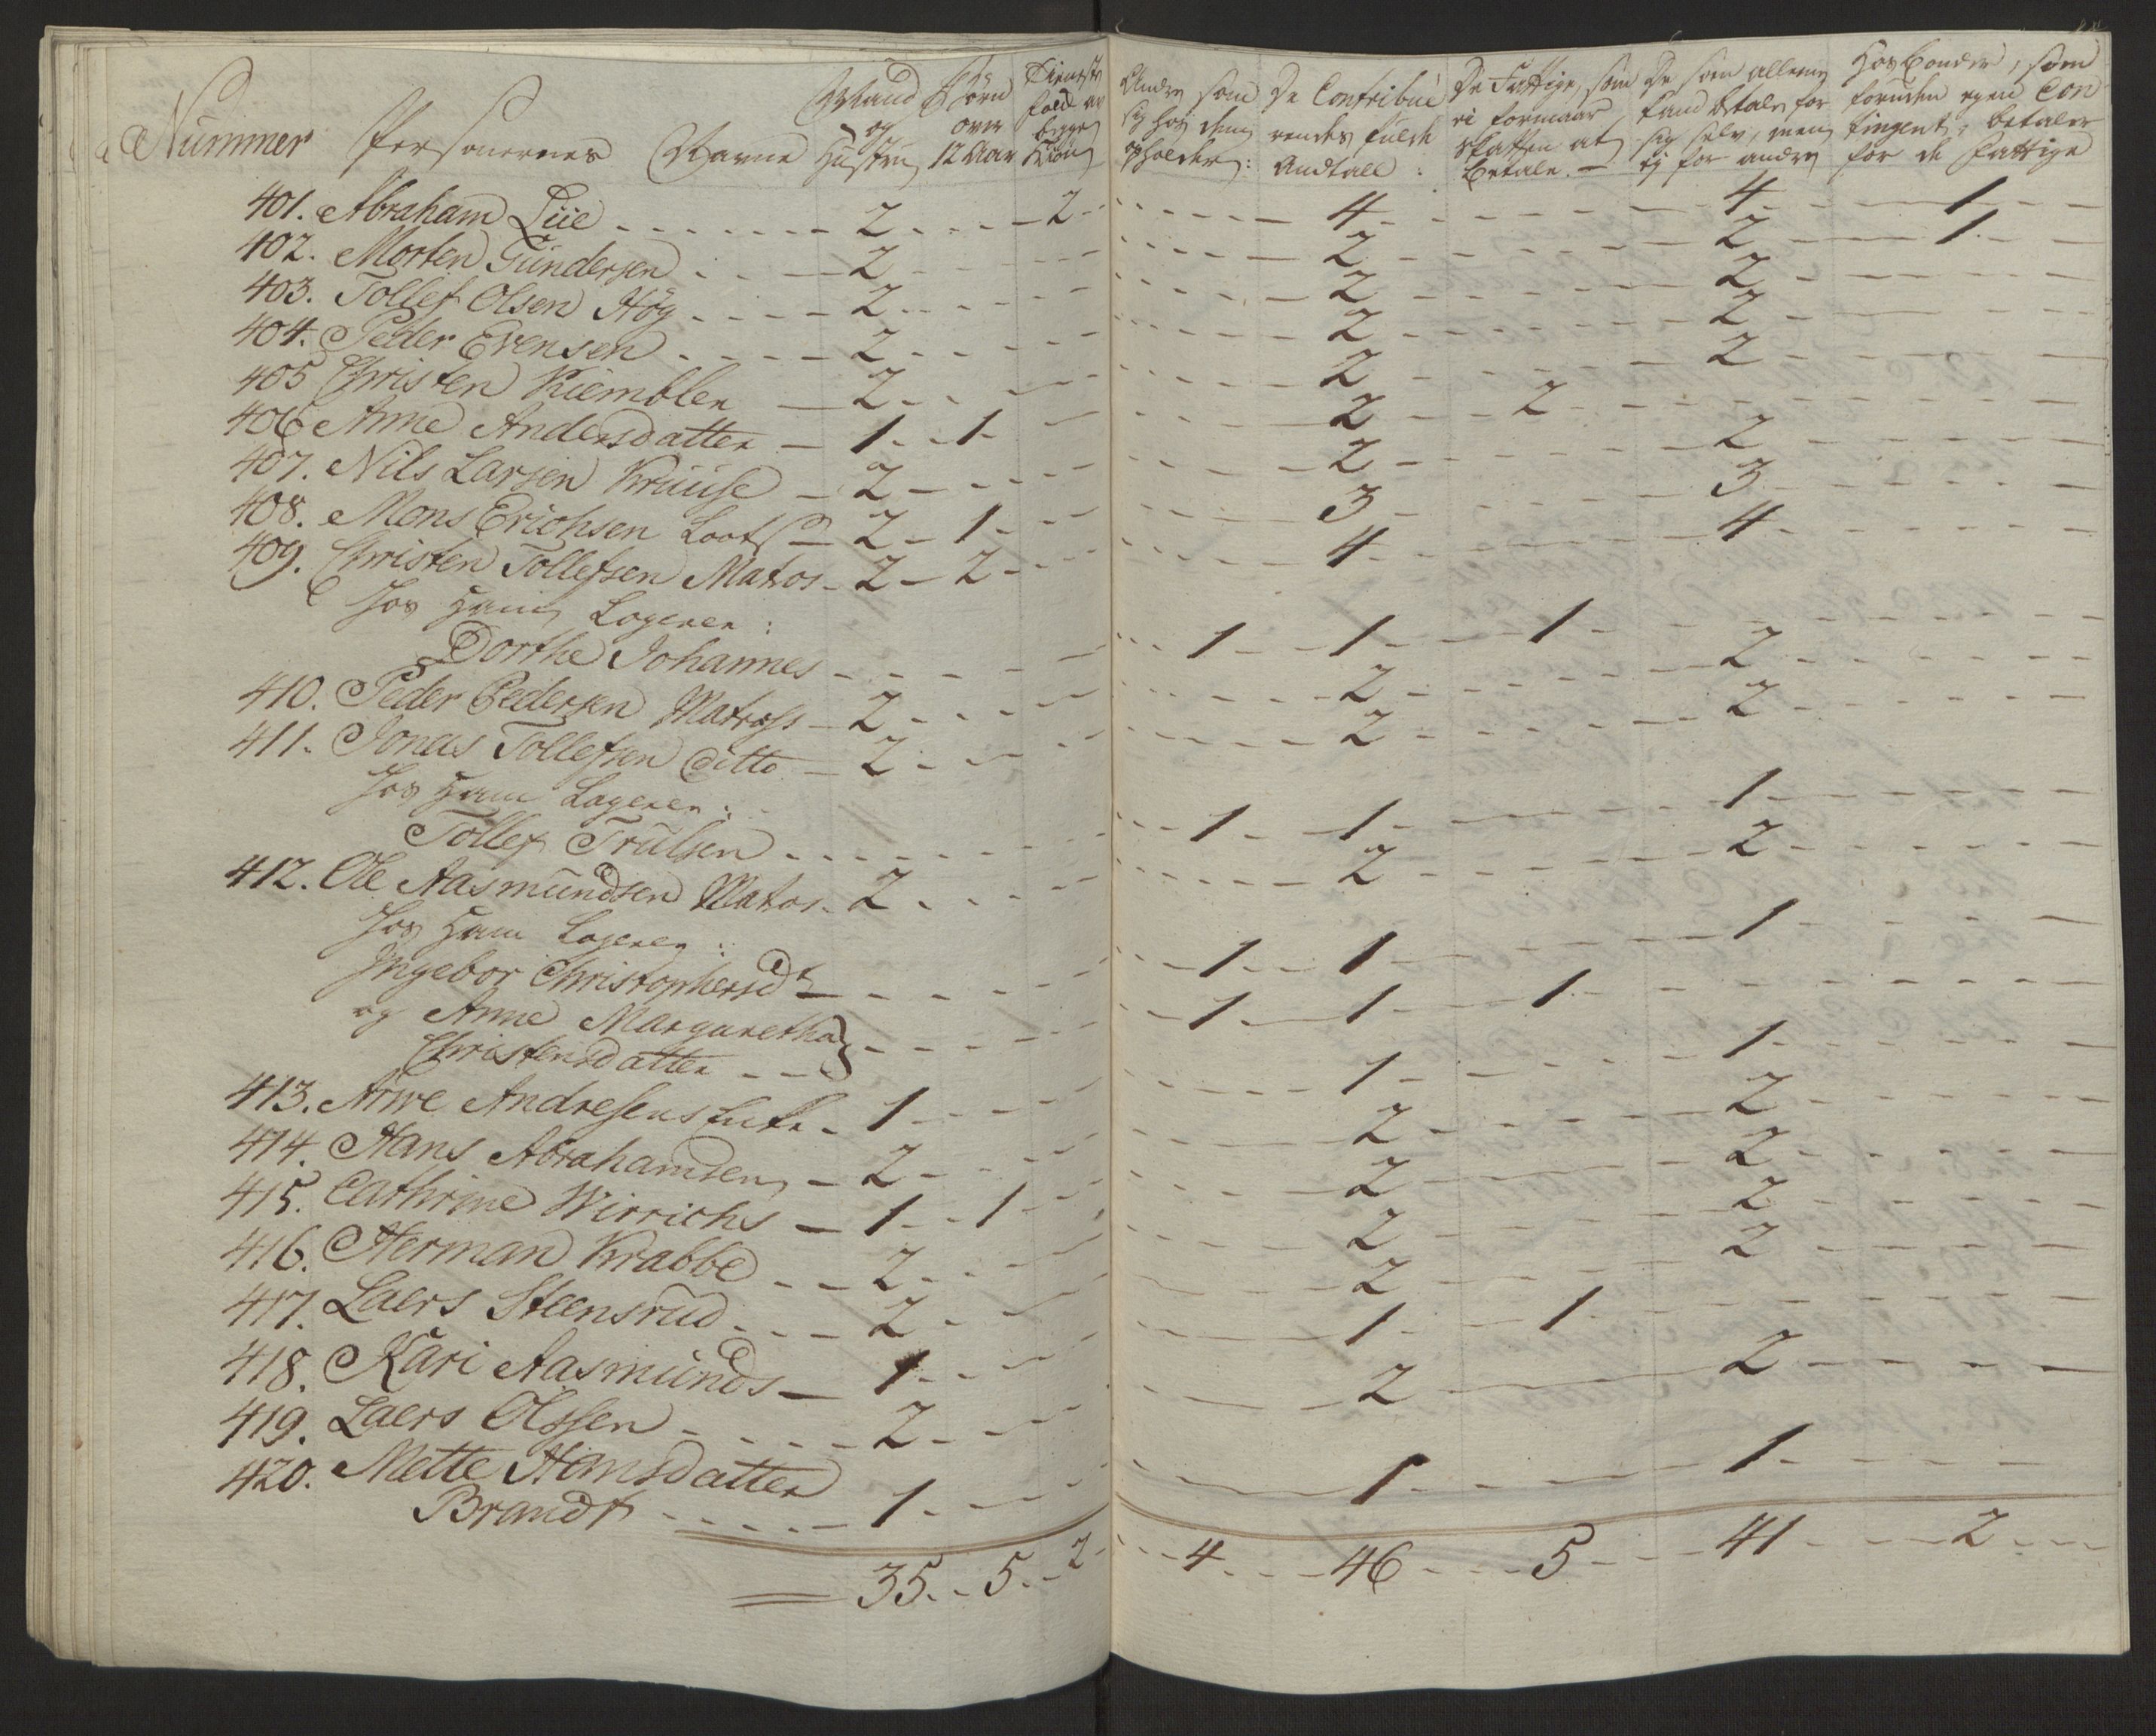 Nummer Persohnernes Navne Mand og Hustru Börn over 12 Aar Tieneste folk af begge Kiön Andre som sig hos dem opholder: De Contribuerendes fulde Andtall: De Fattige, som ei formaar Skatten at betale. De som alleene kand betale for sig selv, men ej for andre Hosbonder, som foruden egen Contingent, betaler for de fattige
401. Abraham Liie 2 2 4 4 1
402. Morten Gundersen 2 2 2 1
403. Tollef Olsen Hög 2 2 2
404. Peder Evensen 2 2 2
405 Christen Kiembler 2 2 2
406 Anne Andersdatter 1 1 2 2
407. Nils Larsen Kruuse 2 2 2
408. Mons Erichsen Loots 2 1 3 3
409. Christen Tollefsen Matros 2 2 4 4
Hos Ham Logerer:
Dorthe Johannes 1 1 1
410. Peder Pedersen Matross 2 2 2
411. Jonas Tollefsen ditto 2 2 2
Hos Ham Logerer:
Tollef Trulsen 1 1 1
412. Ole Aasmundsen Matros 2 2 2
Hos Ham Logerer:
Ingebor Christophersdt 1 1 1
og Anne Margaretha
Christensdatter 1 1 1
413. Arwe Andresens Enke 1 1 1
414. Hans Abrahamsen 2 2 2
415. Cathrine Wirrichs 1 1 2 2
416. Herman Krabbe 2 2 2
417. Laers Steensrud 2 2 2
418. Kari Aasmunds 1 1 1
419. Laers Olssen 2 2 2
420. Mette Hansdatter
Brandt 1 1 1
35 5 2 4 46 5 41 2